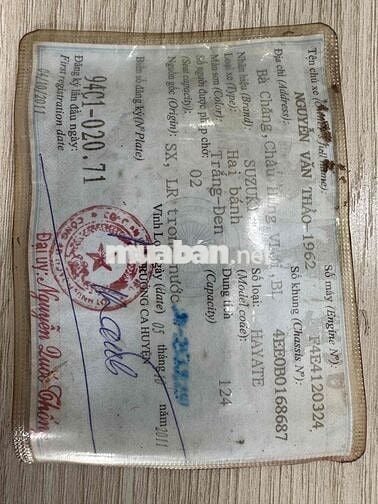 Tên chủ xe
NGUYỄN VĂN THẢO-1962
Số máy (Engine Nº): F4E4120324
Địa chỉ (Address):
Số khung (Chassis Nº): 4EE0B0168687
Bà Chăng, Châu Hưng, Vĩnh Lợi, BL
Nhãn hiệu (Brand): SUZUKI
Số loại: HAYATE
(Model code):
Loại xe (Type): Hai bánh
Dung tích 124
(Capacity)
Màu sơn (Color): Trắng-Đen
Số người được phép chở: 02
(Seat capacity)
Nguồn gốc (Origin): SX, LR trong nước
Vĩnh Lợi, ngày (date) 05 tháng 10 năm 2011
Biển số đăng ký (Nº Plate)
TRƯỞNG CA HUYỆN
94C1-020.71
Đăng ký lần đầu ngày:
First registration date
04/10/2011
Đại úy: Nguyễn Quốc Thống
muaban.net